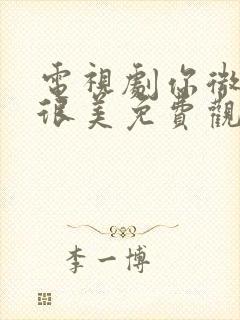 電視劇你微
很美免費觀
李一博